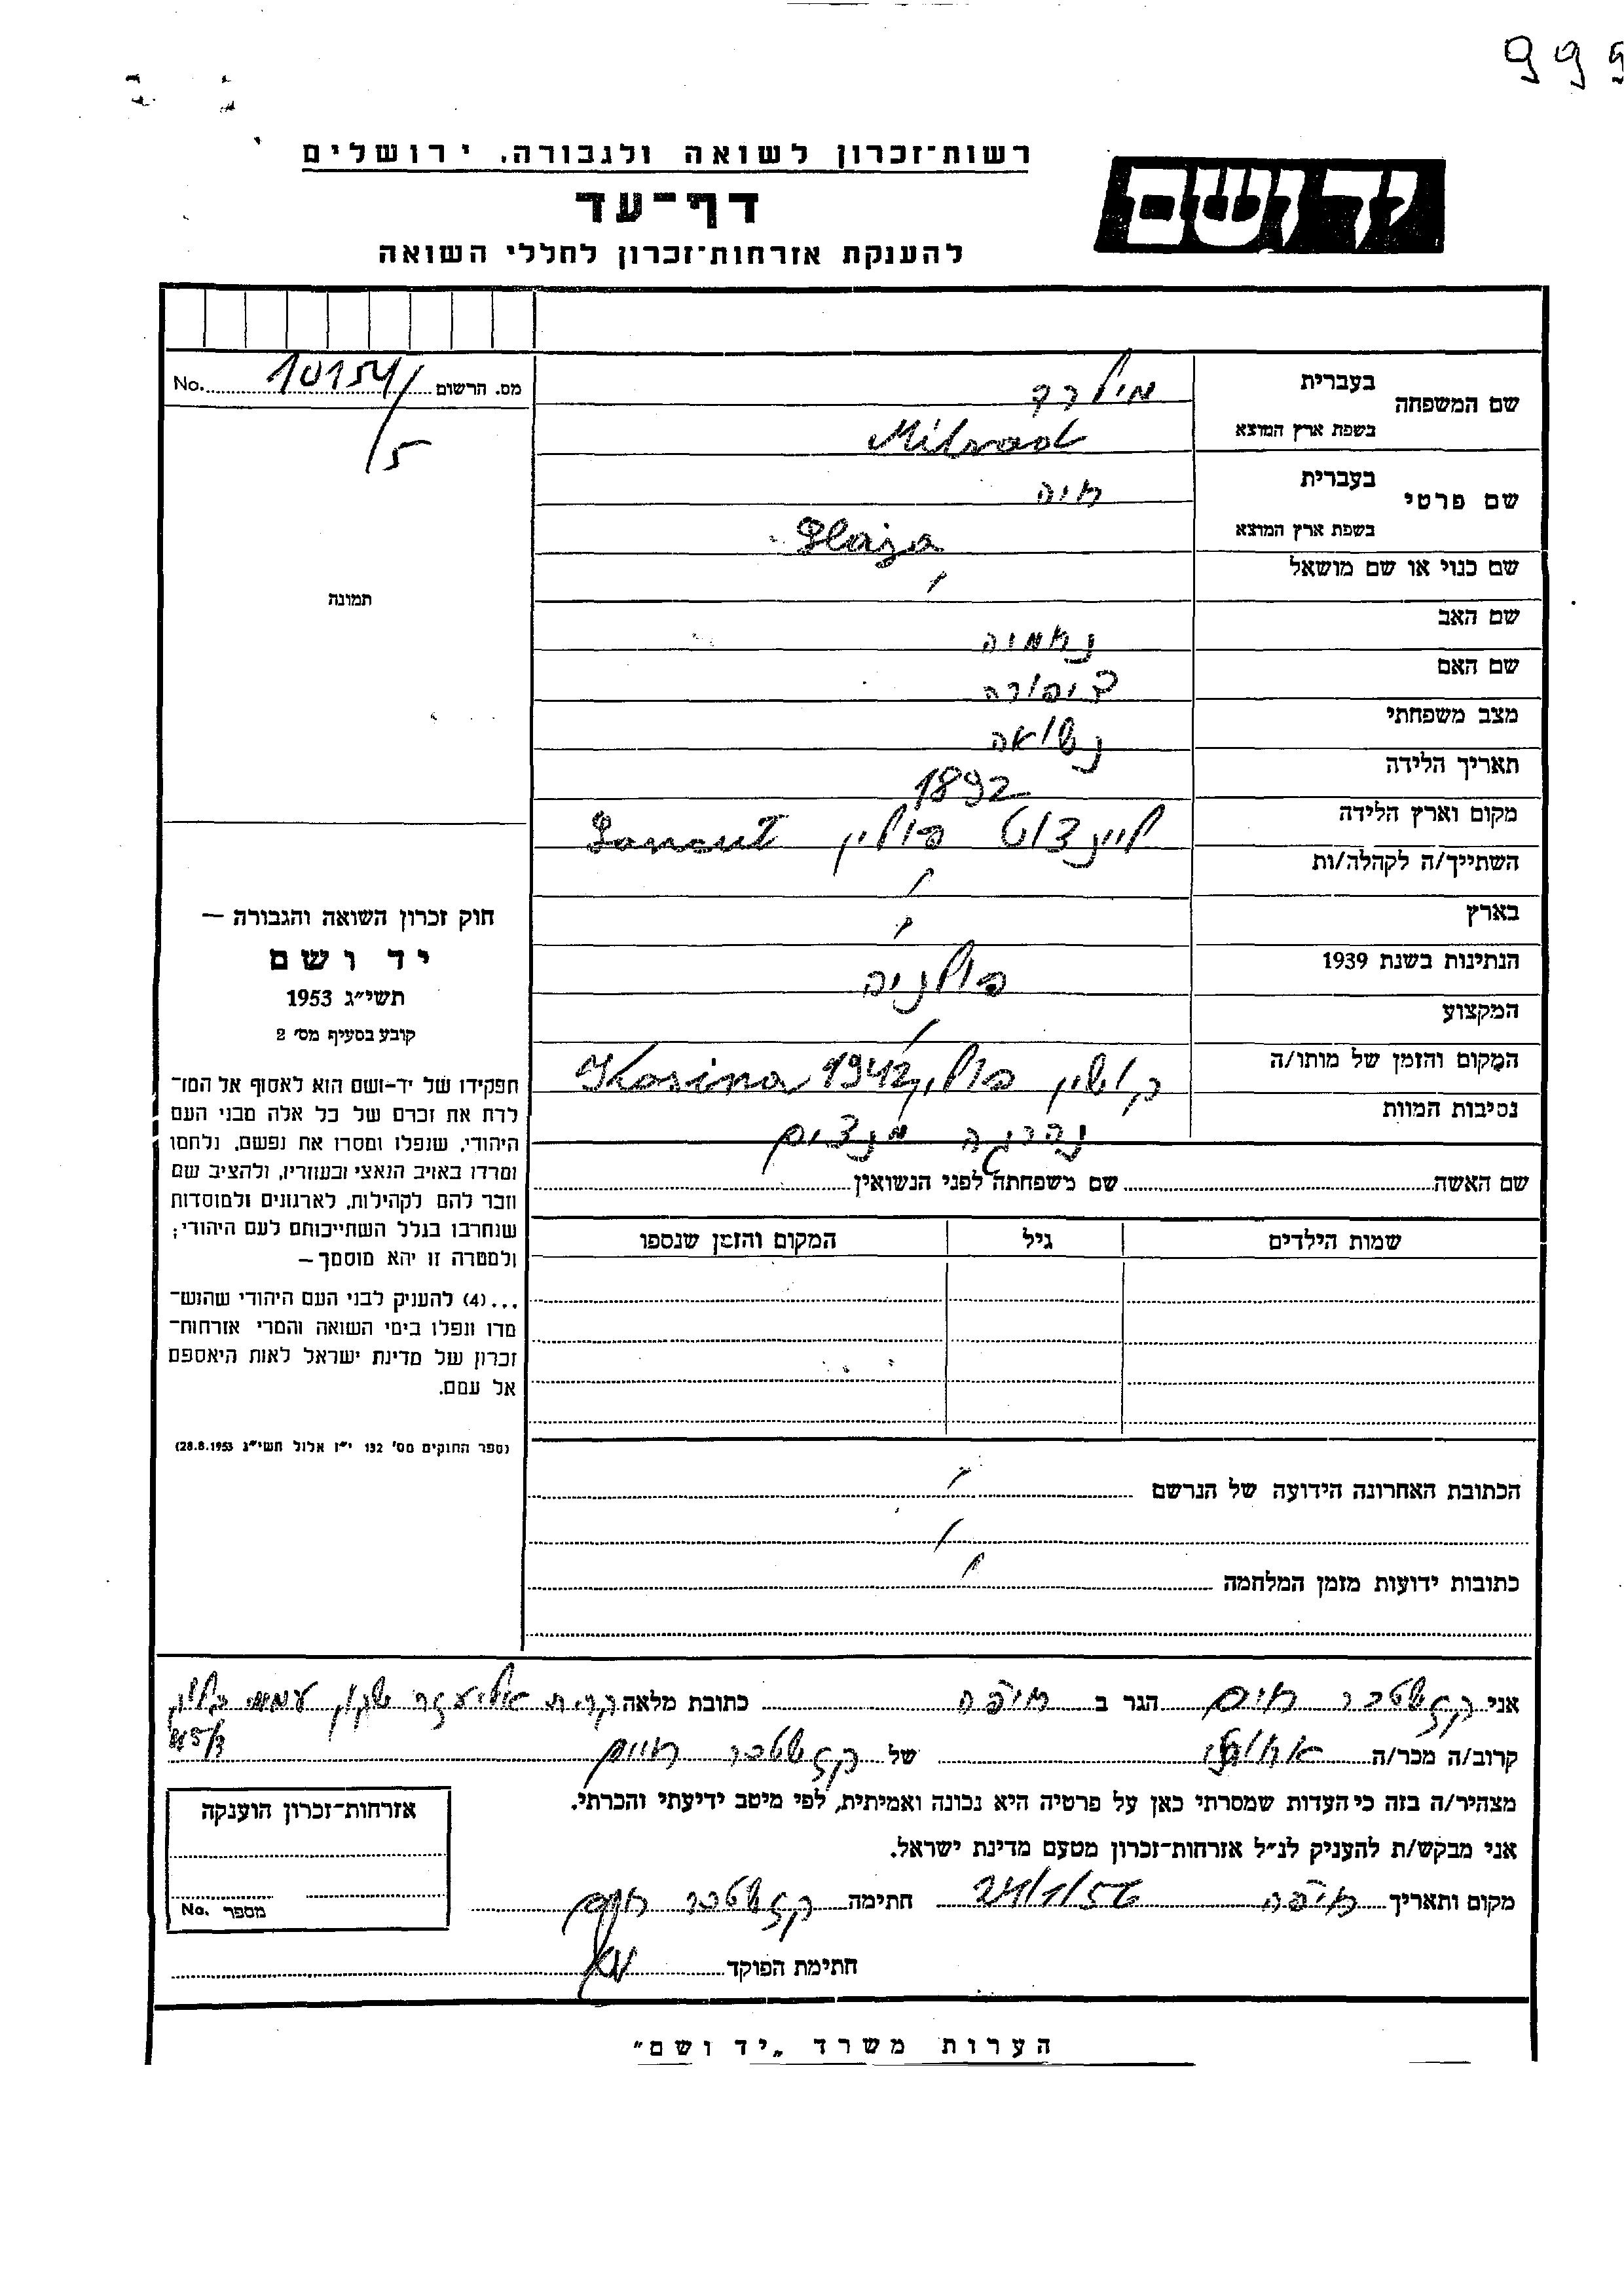 999
רשות־זכרון לשואה ולגבורה, ירושלים
יד ושם
דף־עד
להענקת אזרחות־זכרון לחללי השואה
No. 10154/5 מס. הרשום
תמונה
שם המשפחה
בעברית מילרד
בשפת ארץ המוצא Milrad
שם פרטי
בעברית חיה
בשפת ארץ המוצא Haja
שם כנוי או שם מושאל /
שם האב נחמיה
שם האם ציפורה
מצב משפחתי נשואה
תאריך הלידה 1892
מקום וארץ הלידה לוינצוט פולין Lancut
השתייך/ה לקהלה/ות /
בארץ /
הנתינות בשנת 1939 פולניה
המקצוע /
המקום והזמן של מותו/ה קושין פולין 1942 Kosina
נסיבות המוות נהרגה מנצים
שם האשה שם משפחתה לפני הנשואין
שמות הילדים גיל המקום והזמן שנספו
הכתובת האחרונה הידועה של הנרשם /
/
כתובות ידועות מזמן המלחמה /
חוק זכרון השואה והגבורה —
יד ושם
תשי״ג 1953
קובע בסעיף מס׳ 2
תפקידו של יד-ושם הוא לאסוף אל המו־
לדת את זכרם של כל אלה מבני העם
היהודי, שנפלו ומסרו את נפשם, נלחמו
ומרדו באויב הנאצי ובעוזריו, ולהציב שם
וזכר להם לקהילות, לארגונים ולמוסדות
שנחרבו בגלל השתייכותם לעם היהודי;
ולמטרה זו יהא מוסמך —
...(4) להעניק לבני העם היהודי שהוש־
מדו ונפלו בימי השואה והמרי אזרחות־
זכרון של מדינת ישראל לאות היאספם
אל עמם.
(ספר החוקים מס׳ 132 י״ז אלול תשי״ג 28.8.1953)
אני קזשטכר חיים הגר ב חיפה כתובת מלאה קרית אליעזר שכון עממי בלוק
45/3
קרוב/ה מכר/ה של קזשטכר חיים
מצהיר/ה בזה כי העדות שמסרתי כאן על פרטיה היא נכונה ואמיתית, לפי מיטב ידיעתי והכרתי.
אני מבקש/ת להעניק לנ״ל אזרחות־זכרון מטעם מדינת ישראל.
מקום ותאריך חיפה 24/1/56 חתימה קזשטכר חיים
חתימת הפוקד
אזרחות־זכרון הוענקה
מספר No.
הערות משרד „יד ושם״